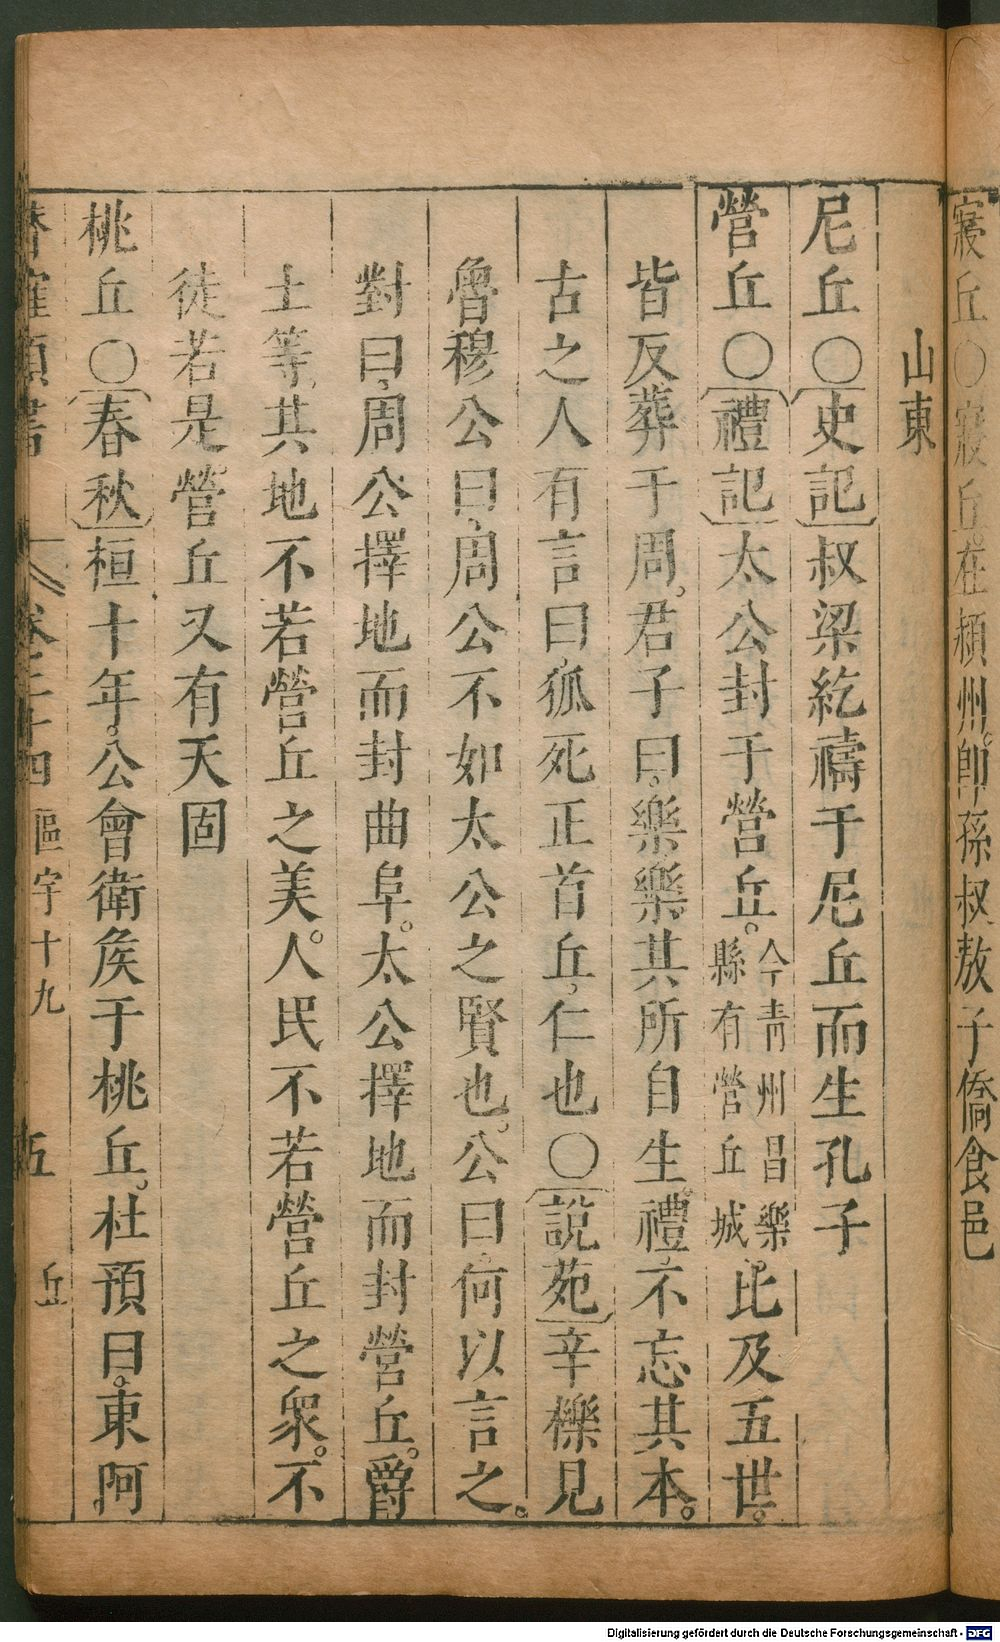 寢丘○寢丘在潁州卽孫叔敖子僑食邑
山東
尼丘○史記叔梁紇禱于尼丘而生孔子
營丘○禮記太公封于營丘。今青州昌樂縣有營丘城比及五世。
皆反葬于周。君子曰樂樂其所自生禮不忘其本。
古之人有言曰狐死正首丘仁也○說苑辛櫟見
魯穆公曰周公不如太公之賢也。公曰何以言之。
對曰周公擇地而封曲阜。太公擇地而封營丘。爵
土等其地不若營丘之美。人民不若營丘之眾。不
徒若是營丘又有天固
桃丘○春秋桓十年。公會衛矦于桃丘。杜預曰。東阿
類書 卷二十四 區宇十九 五 丘
Digitalisierung gefördert durch die Deutsche Forschungsgemeinschaft - DFG